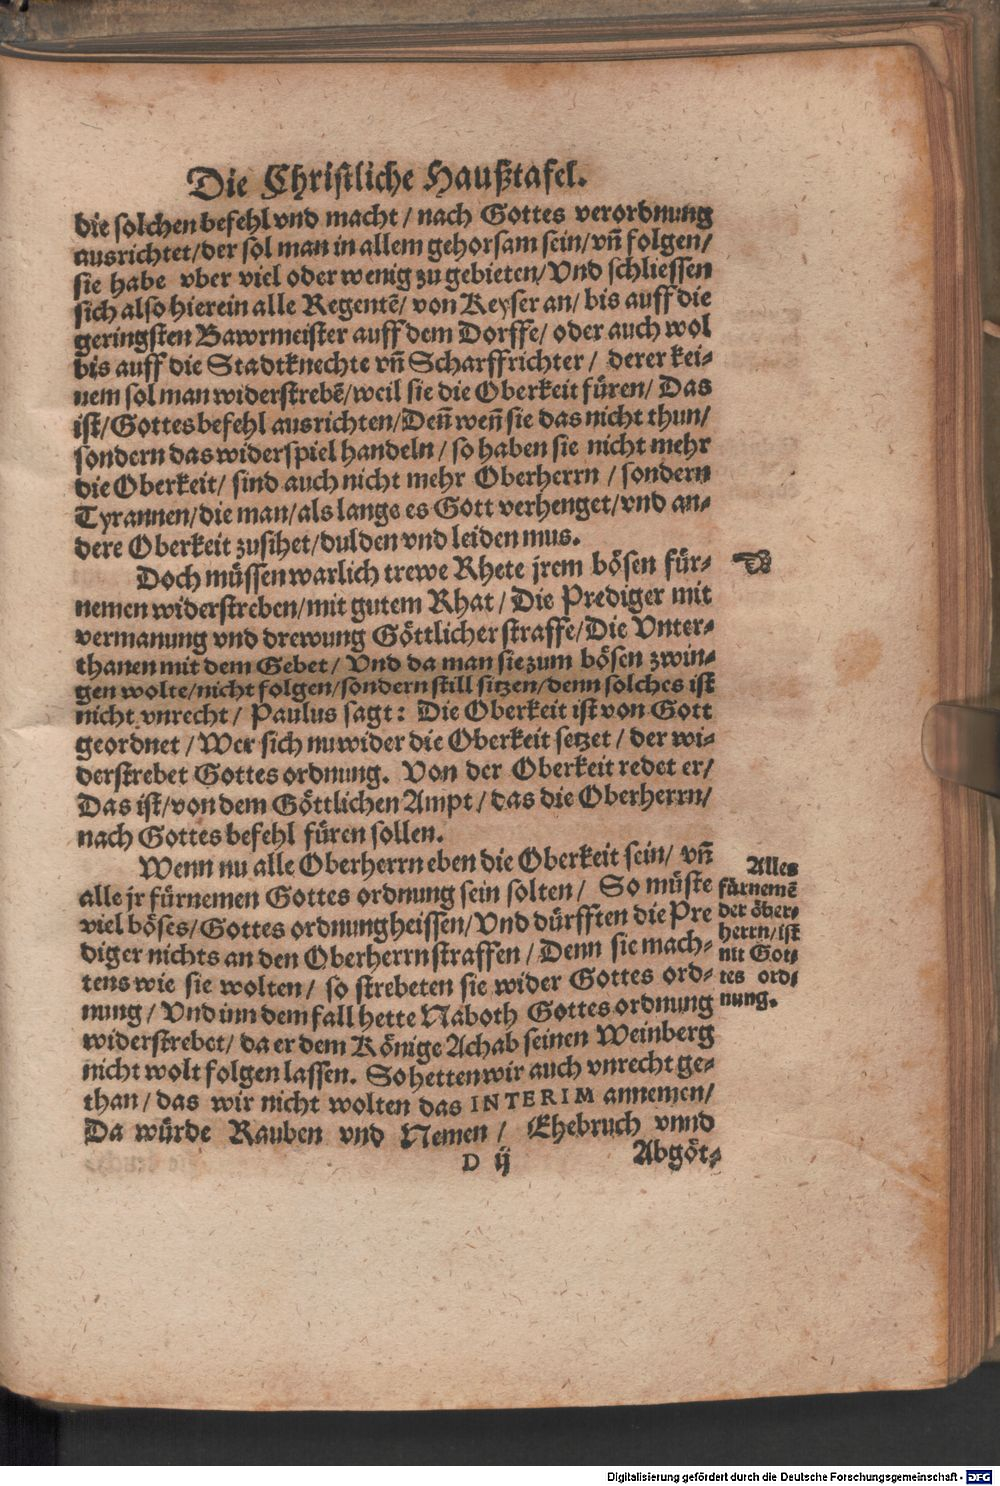 Die Christliche Haußtafel.
die solchen befehl vnd macht / nach Gottes verordnung
ausrichtet/der sol man in allem gehorsam sein/vñ folgen/
sie habe vber viel oder wenig zu gebieten/Vnd schliessen
sich also hierein alle Regentẽ/ von Keyser an/ bis auff die
geringsten Bawrmeister auff dem Dorffe/ oder auch wol
bis auff die Stadtknechte vñ Scharffrichter / derer kei-
nem sol man widerstrebẽ/weil sie die Oberkeit füren/ Das
ist/Gottes befehl ausrichten/Deñ weñ sie das nicht thun/
sondern das widerspiel handeln / so haben sie nicht mehr
die Oberkeit/ sind auch nicht mehr Oberherrn / sondern
Tyrannen/die man/als lange es Gott verhenget/vnd an-
dere Oberkeit zusihet/dulden vnd leiden mus.
Doch müssen warlich trewe Rhete jrem bösen für- ☜
nemen widerstreben/mit gutem Rhat / Die Prediger mit
vermanung vnd drewung Göttlicher straffe/Die Vnter-
thanen mit dem Gebet / Vnd da man sie zum bösen zwin-
gen wolte/nicht folgen/sondern still sitzen/denn solches ist
nicht vnrecht / Paulus sagt: Die Oberkeit ist von Gott
geordnet / Wer sich nu wider die Oberkeit setzet / der wi-
derstrebet Gottes ordnung. Von der Oberkeit redet er/
Das ist/von dem Göttlichen Ampt / das die Oberherrn/
nach Gottes befehl füren sollen.
Wenn nu alle Oberherrn eben die Oberkeit sein/ vñ
alle jr fürnemen Gottes ordnung sein solten / So müste
viel böses/Gottes ordnung heissen/Vnd dürfften die Pre
diger nichts an den Oberherrn straffen / Denn sie mach-
tens wie sie wolten / so strebeten sie wider Gottes ord-
nung / Vnd inn dem fall hette Naboth Gottes ordnung
widerstrebet/ da er dem Könige Achab seinen Weinberg
nicht wolt folgen lassen. So hetten wir auch vnrecht ge-
than / das wir nicht wolten das INTERIM annemen/
Da würde Rauben vnd Nemen / Ehebruch vnnd
D ij Abgöt-
Alles
fürnemẽ
der öber-
herrn/ist
nit Got-
tes ord-
nung.
Digitalisierung gefördert durch die Deutsche Forschungsgemeinschaft - DFG